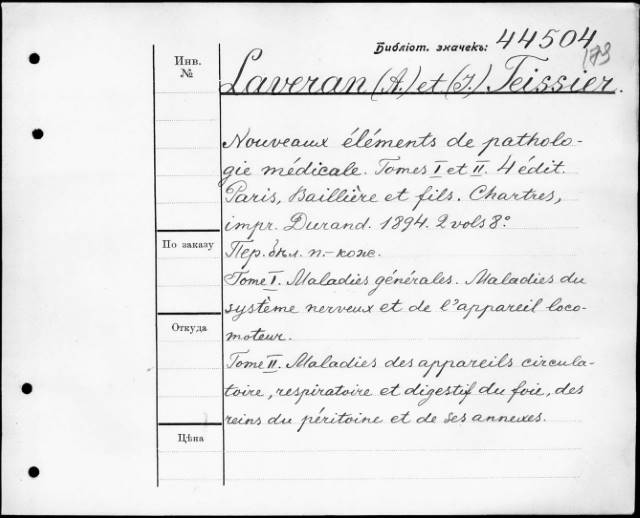 Библіот. значекъ: 44504
173
Инв.
№
Laveran (A.) et (J.) Teissier.
Nouveaux éléments de patholo-
gie médicale. Tomes I et II. 4 édit.
Paris, Baillière et fils. Chartres,
impr. Durand. 1894. 2 vols 8°
По заказу
Пер. бѣл. п.-кож.
Tome I. Maladies générales. Maladies du
système nerveux et de l'appareil loco-
Откуда
moteur.
Tome II. Maladies des appareils circula-
toire, respiratoire et digestif du foie, des
reins du péritoine et de ses annexes.
Цѣна